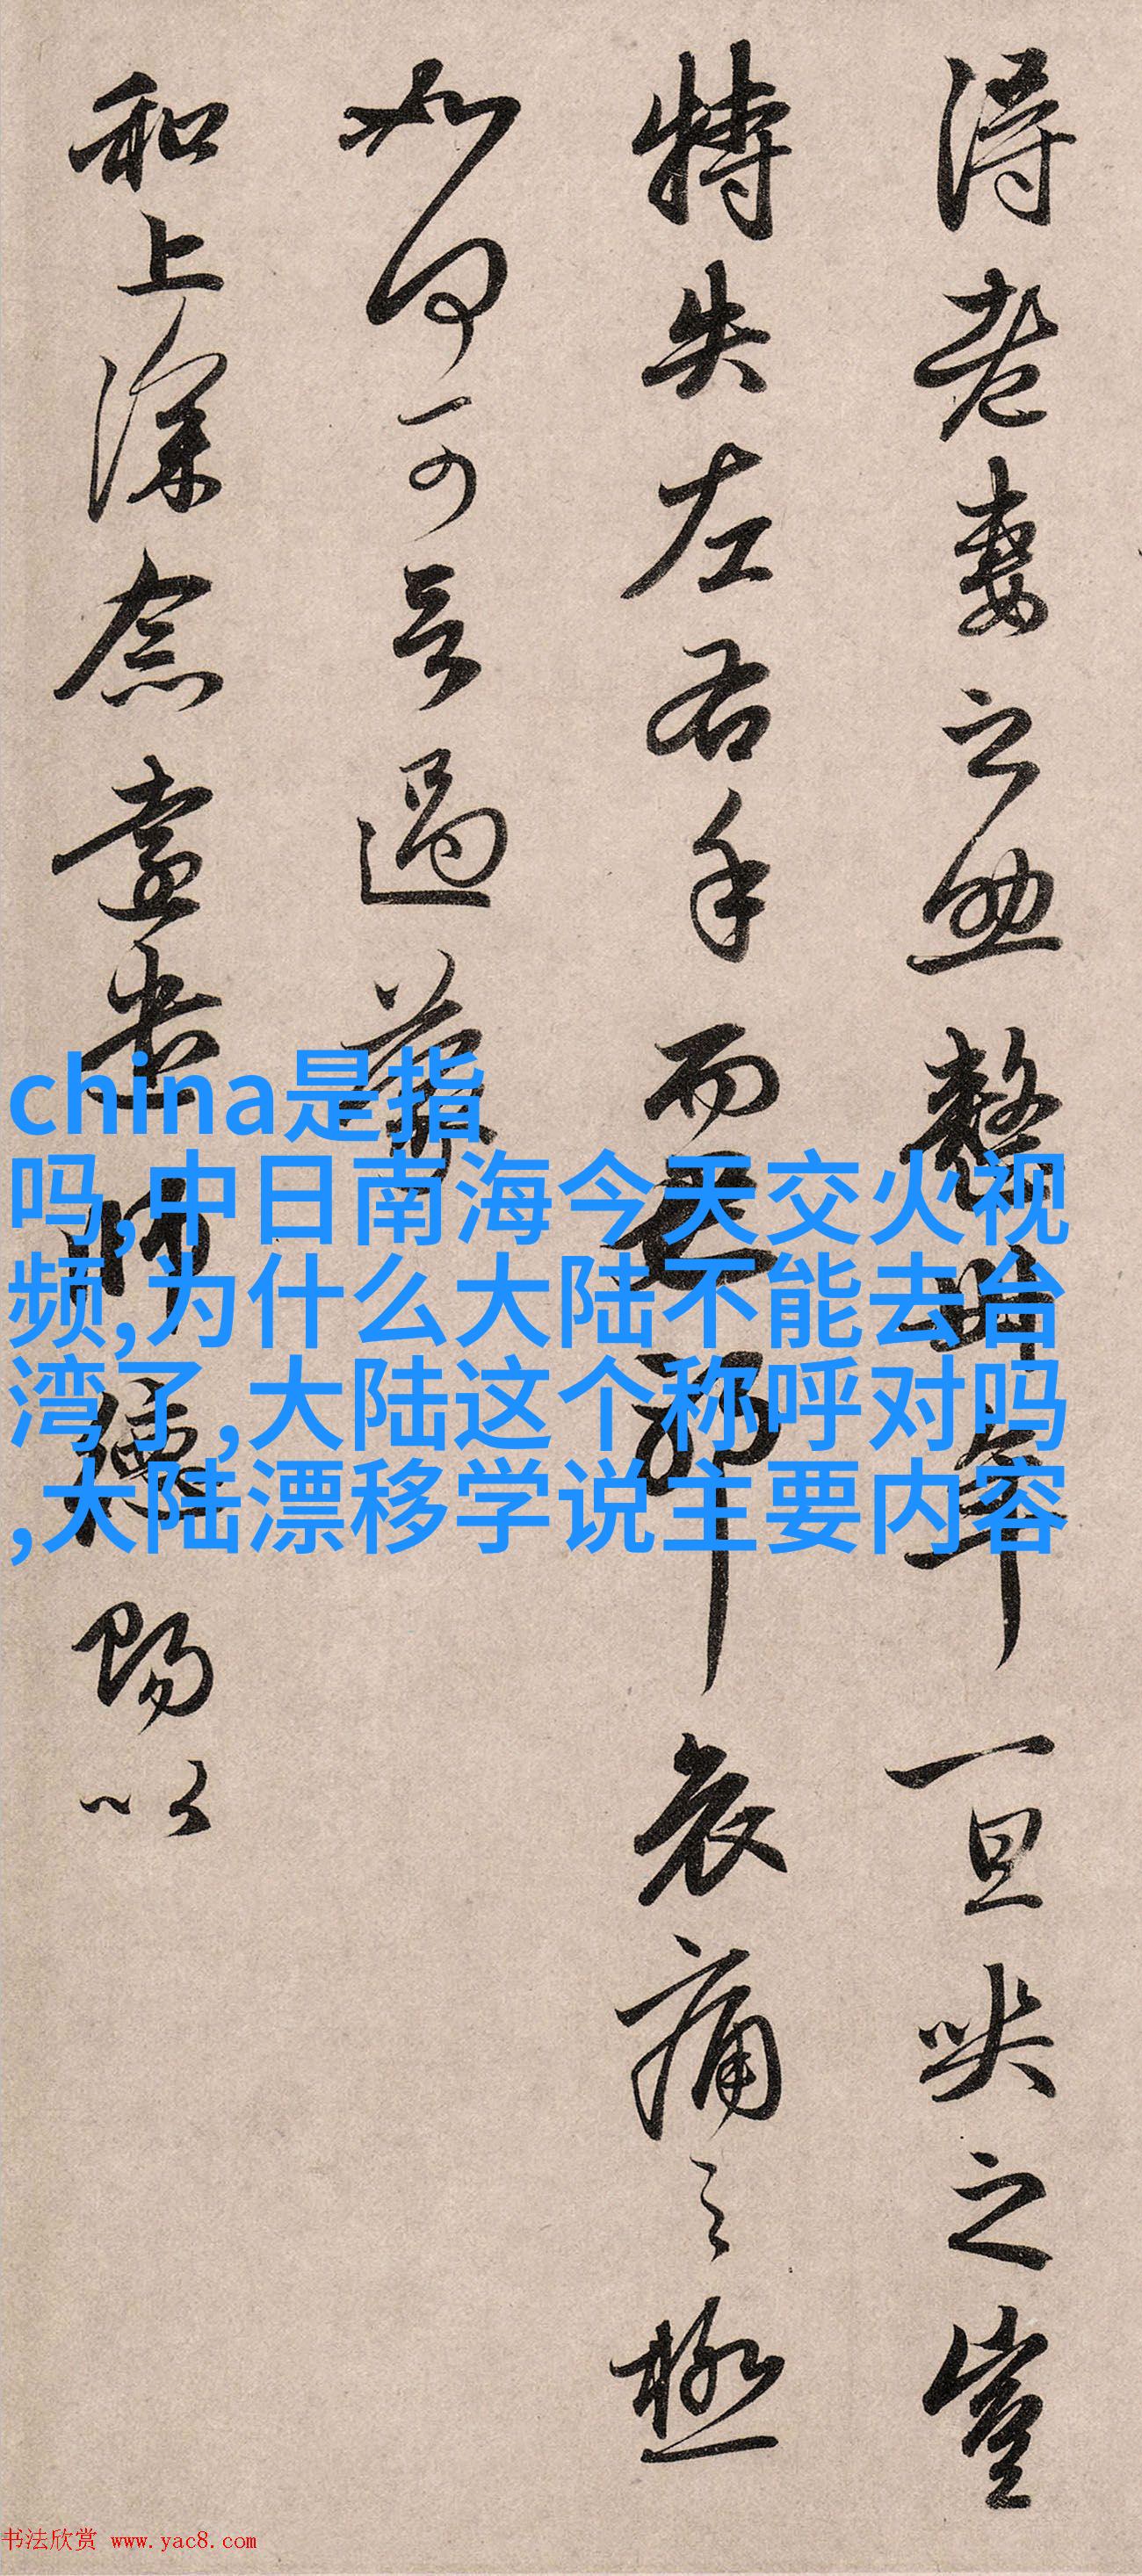 得老妻之助整卅年一旦哭之豈
特失左右手而已耶哀痛之極
如何可言過蒙
和上深念遠遣師德賜以
china是指
吗,中日南海今天交火视
频,为什么大陆不能去台
湾了,大陆这个称呼对吗
,大陆漂移学说主要内容
书法欣赏 www.yac8.com